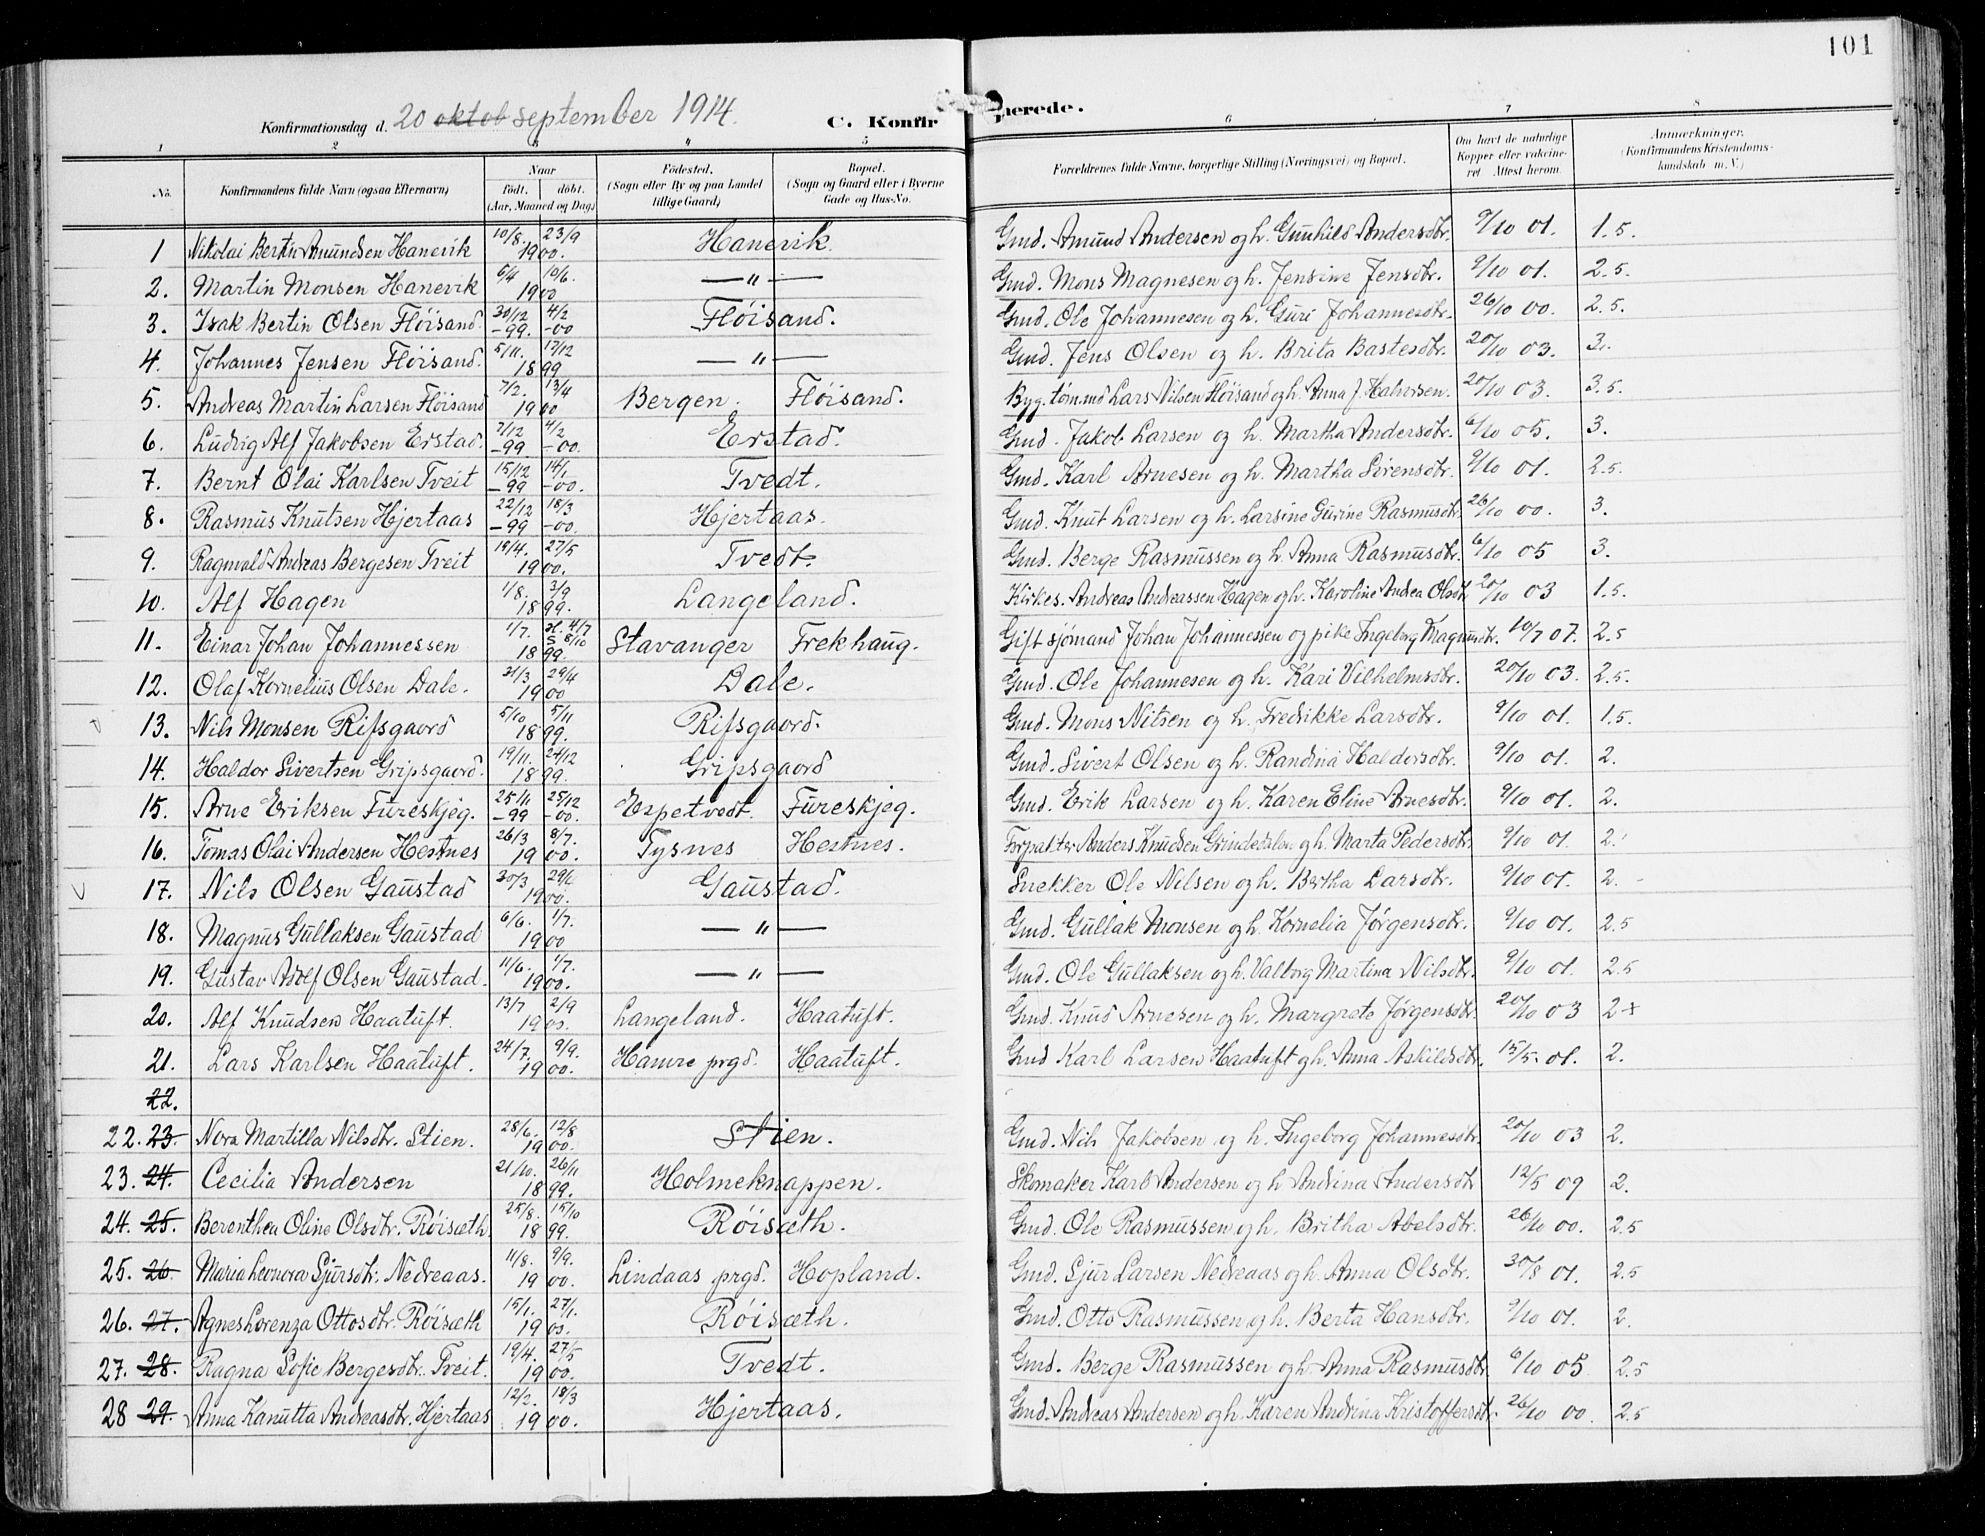 101
Konfirmationsdag d. 20 oktob september 1914. C. Konfir merede.
1 2 3 4 5 6 7 8
No. Konfirmandens fulde Navn (ogsaa Efternavn) Naar født. døbt. (Aar, Maaned og Dag) Fødested. (Sogn eller By og paa Landet tillige Gaard) Bopæl. (Sogn og Gaard eller i Byerne Gade og Hus-No. Forældrenes fulde Navne, borgerlige Stilling (Næringsvei) og Bopæl. Om havt de naturlige Kopper eller vakcineret. Attest herom. Anmærkninger. (Konfirmandens Kristendomskundskab m. V.)
1 Nikolai Bertin Amundsen Hanevik 10/8 23/9 1900. Hanevik. Gmd. Amund Andersen og h. Gunhild Andersdtr. 9/10 01. 1.5.
2. Martin Monsen Hanevik 6/4 10/6. 1900 — " — Gmd. Mons Magnesen og h. Jensine Jensdtr. 9/10 01. 2.5.
3. Isak Bertin Olsen Fløisand. 30/12 -99. 4/2 -00 Fløisand. Gmd. Ole Johannesen og h. Guri Johannesdtr. 26/10 00. 2.5.
4. Johannes Jensen Fløisand. 5/11. 17/12 1899 — " — Gmd. Jens Olsen og h. Brita Bastesdtr. 20/10 03. 3.
5. Andreas Martin Larsen Fløisand 7/2. 13/4 1900 Bergen. Fløisand. Byg.tømmd Lars Nilsen Fløisand og h. Anna J. Halvorsen. 20/10 03. 3.5.
6. Ludvig Alf Jakobsen Erstad. 7/12 -99 4/2 -00. Erstad. Gmd. Jakob Larsen og h. Martha Andersdtr. 6/10 05. 3.
7. Bernt Olai Karlsen Tveit 15/12 -99 14/1 -00. Tvedt. Gmd. Karl Arnesen og h. Martha Sørensdtr. 9/10 01. 2.5.
8. Rasmus Knutsen Hjertaas 22/12 -99 18/3 -00. Hjertaas. Gmd. Knut Larsen og h. Larsine Gurine Rasmusdtr. 26/10 00. 3.
9. Ragnvald Andreas Bergesen Tveit 19/4. 27/5 1900. Tvedt. Gmd. Berge Rasmussen og h. Anna Rasmusdtr. 6/10 05 3.
10. Alf Hagen 1/8. 3/9 1899. Langeland. Kirkes. Andreas Andreassen Hagen og h. Karoline Andrea Olsdtr 20/10 03 1.5.
11. Einar Johan Johannessen 1/7. H. 4/7 S 8/10 1899. Stavanger Frekhaug. Gift sjømand Johan Johannessen og pike Ingeborg Magnusdtr. 10/7 07. 2.5
12. Olaf Kornelius Olsen Dale. 31/3 29/4 1900 Dale. Gmd. Ole Johannesen og h. Kari Vilhelmsdtr. 20/10 03. 2.5.
13. Nils Monsen Rifsgaard 5/10 5/11 1899. Rifsgaard. Gmd. Mons Nilsen og h. Fredrikke Larsdtr. 9/10 01. 1.5.
14. Haldor Sivertsen Gripsgaard. 19/11. 24/12 1899. Gripsgaard Gmd. Sivert Olsen og h. Randina Haldorsdtr. 9/10 01. 2.
15. Arne Eriksen Fureskjeg. 25/11 -99 25/12 -00. Espetvedt. Fureskjeg. Gmd. Erik Larsen og h. Karen Eline Arnesdtr. 9/10 01. 2.
16. Tomas Olai Andersen Hestnes 26/3 8/7. 1900. Tysnes Hestnes. Forpakter Anders Knudsen Grindedalen og h. Marta Pedersdtr. 9/10 01. 2.
17. Nils Olsen Gaustad 30/3 29/6 1900. Gaustad. Snekker Ole Nilsen og h. Bertha Larsdtr. 9/10 01. 2.
18. Magnus Gullaksen Gaustad 6/6. 1/7. 1900 — " — Gmd. Gullak Monsen og h. Kornelia Jørgensdtr. 9/10 01. 2.5
19. Gustav Adolf Olsen Gaustad. 11/6. 1/7. 1900. — " — Gmd. Ole Gullaksen og h. Valborg Martina Nilsdtr. 9/10 01. 2.5
20. Alf Knudsen Haatuft. 13/7 2/9 1900. Langeland. Haatuft. Gmd. Knud Arnesen og h. Margrete Jørgensdtr. 20/10 03 2 +
21. Lars Karlsen Haatuft. 24/7. 9/9. 1900. Hamre prgd. Haatuft. Gmd Karl Larsen Haatuft og h. Anna Askildsdtr. 15/5. 01. 2.
22.
22. 23. Nora Martilla Nilsdtr. Stien. 28/6. 12/8 1900. Stien. Gmd. Nils Jakobsen og h. Ingeborg Johannesdtr. 20/10 03 2.
23. 24. Cecilia Andersen 21/10. 26/11 1899. Holmeknappen. Skomaker Karl Andersen og h Andrina Andersdtr 12/5 09 2.
24. 25. Berenthea Oline Olsdtr. Røisæth. 25/8. 15/10 1899. Røisæth. Gmd. Ole Rasmussen og h. Britha Abelsdtr. 26/10 00. 2.5
25. 26. Maria Leonora Sjursdtr. Nedreaas. 11/8. 9/9. 1900. Lindaas prgd. Hopland. Gmd. Sjur Larsen Nedreaas og h. Anna Olsdtr. 30/8 01. 2.5
26. 27. Agnes Lorenza Ottosdtr. Røisæth 15/1. 27/1. 1900. Røisæth. Gmd. Otto Rasmussen og h. Berta Hansdtr. 9/10 01. 2.
27. 28. Ragna Sofie Bergesdtr. Tveit. 19/4. 27/5 1900. Tvedt. Gmd. Berge Rasmussen og h. Anna Rasmusdtr. 6/10 05 2.5
28 29. Anna Kanutta Andreasdtr. Hjertaas 12/2. 18/3 1900. Hjertaas. Gmd. Andreas Andersen og h. Karen Andrina Kristoffersdtr. 26/10 00. 2.5